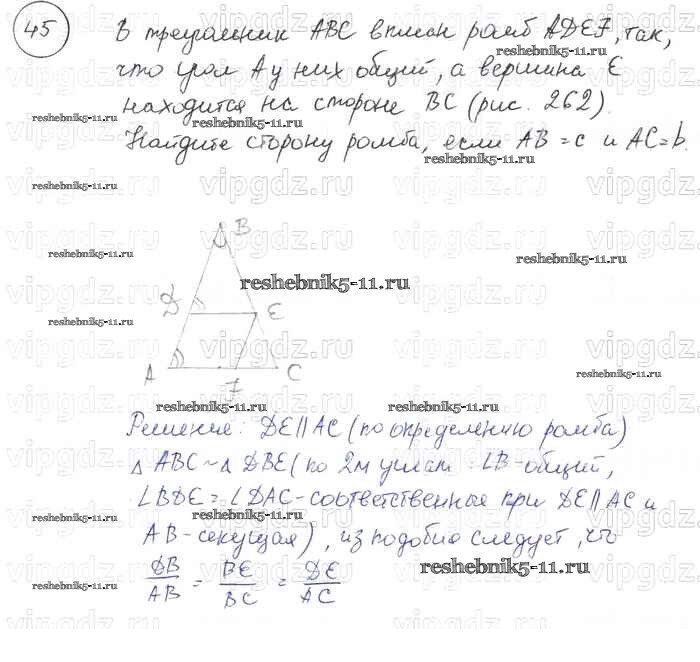 45
В треугольник ABC вписан ромб ADEF, так,
что угол A у них общий, а вершина E
находится на стороне BC (рис. 262).
Найдите сторону ромба, если AB = c и AC = b.
reshebnik5-11.ru
B
D
E
A
F
C
Решение: DE || AC (по определению ромба)
△ ABC ~ △ DBE (по 2м углам: ∠B - общий,
∠BDE = ∠DAC - соответственные при DE || AC и
AB - секущая), из подобия следует, что
DB/AB = BE/BC = DE/AC
vipgdz.ru